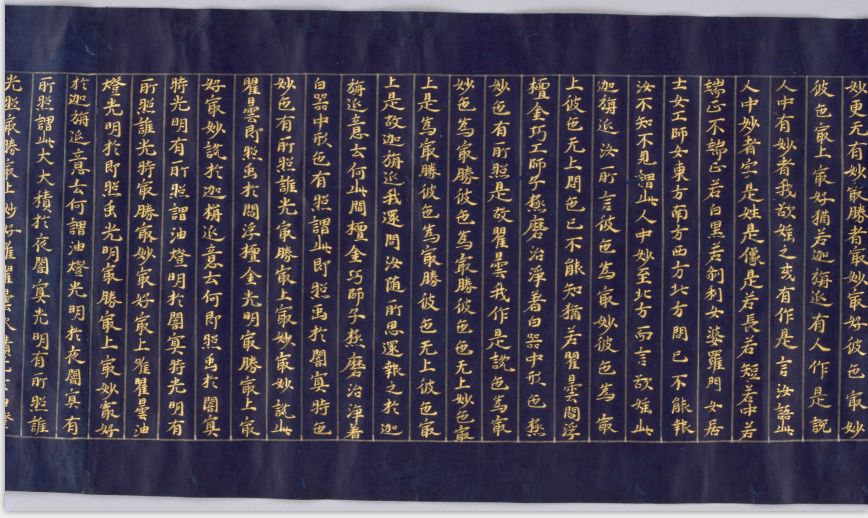 妙更无有妙㝡勝者㝡妙㝡好彼色㝡妙
彼色㝡上㝡好猶若迦旃延有人作是說
人中有妙者我欲婬之或有作是言汝諮此
人中妙者字是姓是像是若長若短若中若
端正不端正若白黑若剎利女婆羅門女居
士女工師女東方南方西方北方問已不能報
汝不知不見謂此人中妙至北方而言欲婬此
迦旃延汝所言彼色為㝡妙彼色為㝡
上彼色无上問色已不能知猶若瞿曇閻浮
檀金巧工師子極磨治淨著白器中形色極
妙色有所照是故瞿曇我作是說色為㝡
妙色為㝡勝彼色為㝡勝彼色色无上妙色㝡
上是為㝡勝彼色為㝡勝彼色无上彼色㝡
上是故迦旃延我還問汝随所思還報之於迦
旃延意云何此閻檀金巧師子極磨治淨著
白器中形色有照謂此即照禹於闇冥時色
妙色有所照誰光㝡勝㝡上㝡妙㝡妙說此
瞿曇即照禹於閻浮檀金光明㝡勝㝡上㝡
好㝡妙說於迦旃延意云何即照禹於闇冥
時光明有所照謂油燈明於闇冥時光明有
所照誰光時㝡勝㝡妙㝡好㝡上唯瞿曇油
燈光明於即照禹光明㝡勝㝡上㝡妙㝡好
於迦旃延意云何謂油燈光明於夜闇冥有
所照謂此大大積於夜闇冥光明有所照誰
光照㝡勝㝡上妙好唯瞿曇